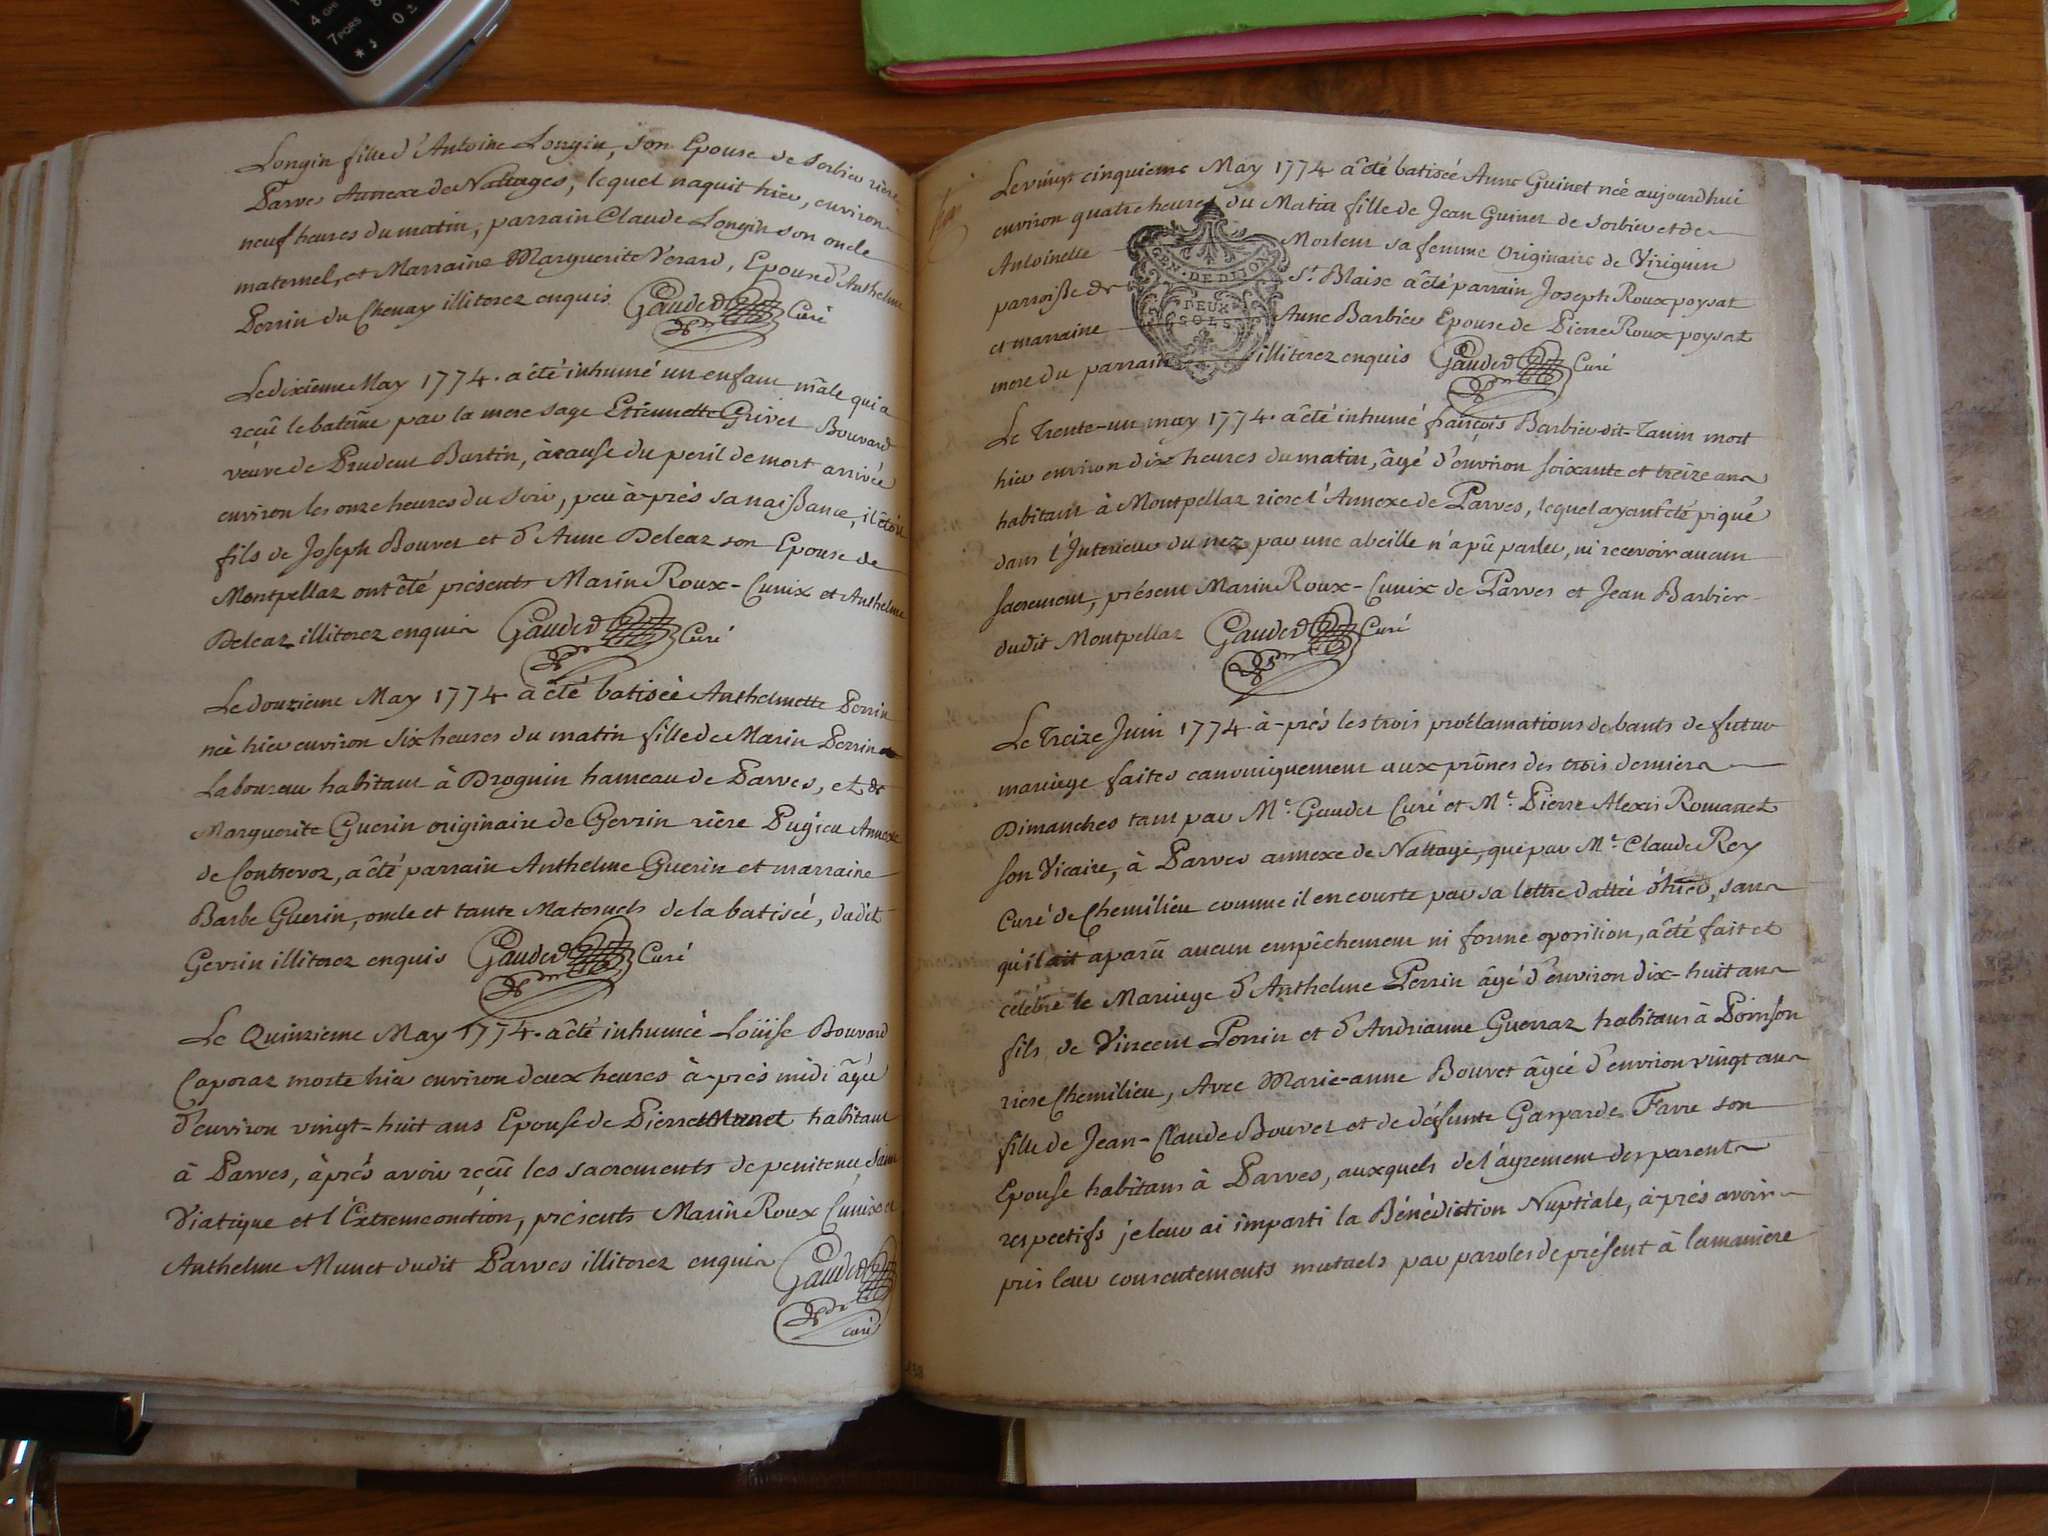 4 GHI
0 ±
7 PQRS
*
Longin fille d'Antoine Longin, son Epouse de Sorbieu rière
Parves Annexe de Nattages, lequel naquit hier, environ
neuf heures du matin, parrain Claude Longin son oncle
maternel, et Marraine Marguerite Verard, Epouse d'Anthelme
Perrin du Chenay illiterez enquis Gauded Curé
Le dixième May 1774. a êté inhumé un enfant mâle qui a
reçû le batême par la mere sage Etiennette Grivet Bouvard
veuve de Prudent Burtin, à cause du peril de mort arrivée
environ les onze heures du soir, peu à-prés sa naissance, il êtoit
fils de Joseph Bouvet et d'Anne Deleaz son Epouse de
Montpellaz ont êté présents Marin Roux-Cunix et Anthelme
Deleaz illiterez enquis Gauded Curé
Le douzieme May 1774 a êté batisée Anthelmette Perrin
née hier environ six heures du matin fille de Marin Perrin
Laboureur habitant à Droguin hameau de Parves, et de
Marguerite Guerin originaire de Gevrin rière Pugieu Annexe
de Contrevoz, a êté parrain Anthelme Guerin et marraine
Barbe Guerin, oncle et tante Maternels de la batisée, dudit
Gevrin illiterez enquis Gauded Curé
Le Quinzieme May 1774. a êté inhumée Loüise Bouvard
Caporaz morte hier environ deux heures à-prés midi âgée
d'environ vingt-huit ans Epouse de Pierre Munet habitant
à Parves, àprés avoir reçû les sacrements de penitence, Saint
Viatique et l'Extremeonction, présents Marin Roux Cunix et
Anthelme Munet dudit Parves illiterez enquis Gauded
curé
Le vingt cinquieme May 1774 a êté batisée Anne Guinet née aujourdhui
environ quatre heures du Matin fille de Jean Guinet de Sorbieu et de
Antoinette Morteur sa femme originaire de Virignin
parroisse de St Blaise a êté parrain Joseph Roux poysat
et marraine Anne Barbier Epouse de Pierre Roux poysat
mere du parrain illiterez enquis Gauded Curé
GEN. DE DIJON
DEUX
SOLS
Le Trente-un may 1774. a êté inhumé françois Barbier-dit-Tanin mort
hier environ dix heures du matin, âgé d'environ soixante et treize ans
habitant à Montpellaz riere l'Annexe de Parves, lequel ayant êté piqué
dans l'Interieur du nez par une abeille n'a pû parler, ni recevoir aucun
sacrement, présent Marin Roux-Cunix de Parves et Jean Barbier
dudit Montpellaz Gauded Curé
Le Treize Juin 1774 à-prés les trois proclamations de bants de futur
mariege faites canoniquement aux prônes des trois derniers
Dimanches tant par Mr. Gauded Curé et Mr. Pierre Alexis Romanet
son Vicaire, à Parves annexe de Nattage, que par Mr. Claude Rey
Curé de Chemilieu comme il en conste par sa lettre dattée d'hier, sans
qu'il ait aparû aucun empêchement ni forme oposition, a êté fait et
célébré le Mariege d'Anthelme Perrin âgé d'environ dix-huit ans
fils de Vincent Perrin et d'Andrianne Guerraz habitans à Poinson
riere Chemilieu, Avec Marie-anne Bouvet âgée d'environ vingt ans
fille de Jean-Claude Bouvet et de défunte Gasparde Favre son
Epouse habitans à Parves, auxquels de l'ágrement des parents
respectifs je leur ai imparti la Bénédiction Nuptiale, à-prés avoir
pris leur consentements mutuels par paroles de présent à la maniere